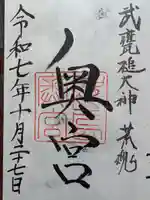 武甕槌大神 荒魂
奥宮
令和七年十月二十七日